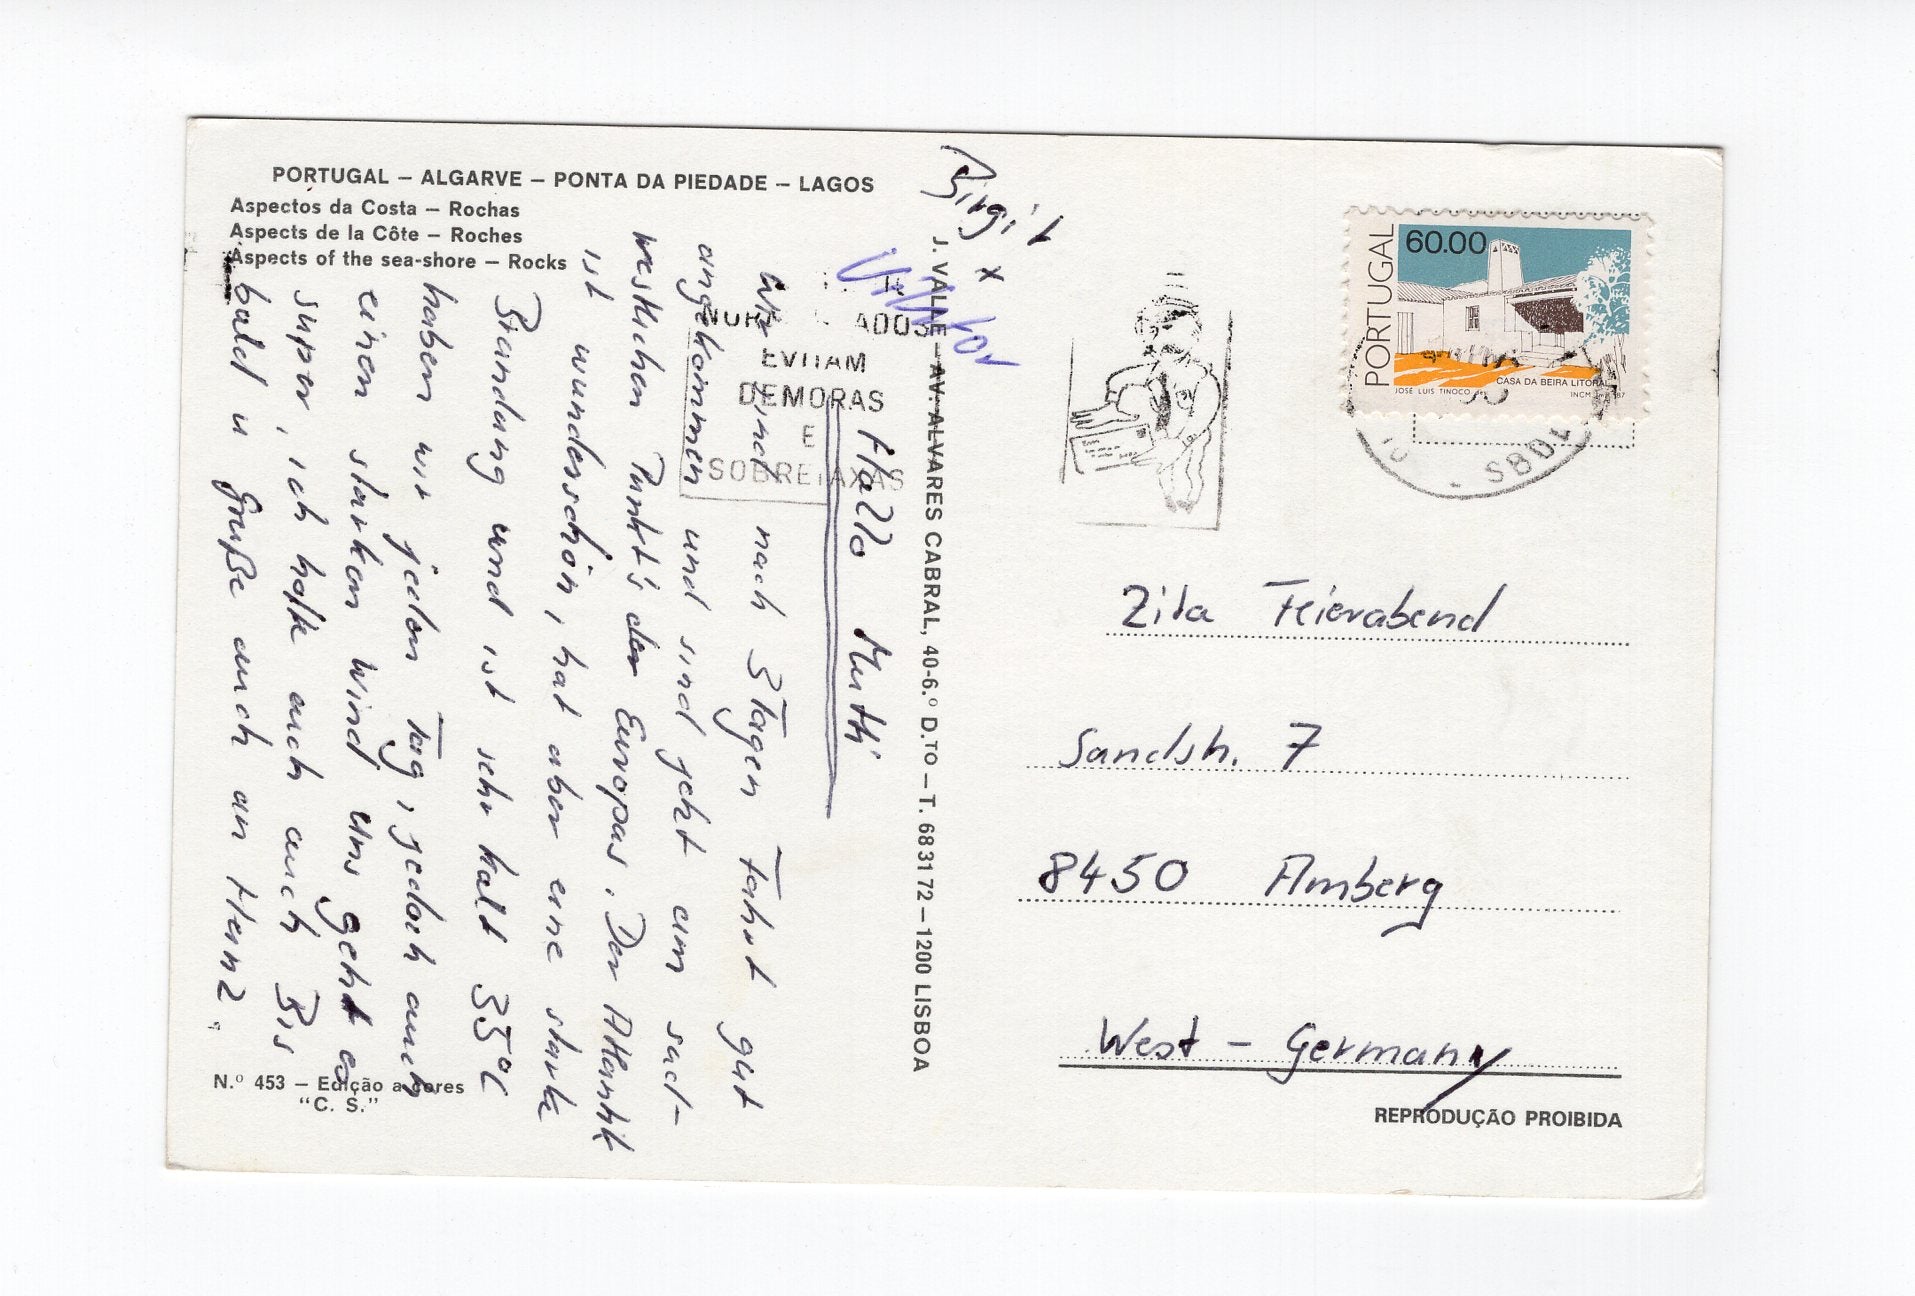 PORTUGAL – ALGARVE – PONTA DA PIEDADE – LAGOS
Aspectos da Costa – Rochas
Aspects de la Côte – Roches
Aspects of the sea-shore – Rocks
Hallo Mutti
Wir sind nach 3 Tagen Fahrt gut
angekommen und sind jetzt am süd-
westlichen Punkt's der Europas. Der Atlantik
ist wunderschön, hat aber eine starke
Brandung und ist sehr kalt 35°C
haben wir jeden Tag, jedoch auch
einen starken Wind uns geht es
super, ich hoffe euch auch Bis
bald u Grüße auch an Heinz.
Birgit
x
J. VALLE – AV. ALVARES CABRAL, 40-6.º D.TO – T. 683172 – 1200 LISBOA
EVITAM
DEMORAS
E
SOBRETAXAS
PORTUGAL
60.00
CASA DA BEIRA LITORAL
JOSÉ LUIS TINOCO
INCM
Zita Feierabend
Sandstr. 7
8450 Amberg
West – Germany
N.º 453 – Edição açores
"C. S."
REPRODUÇÃO PROIBIDA